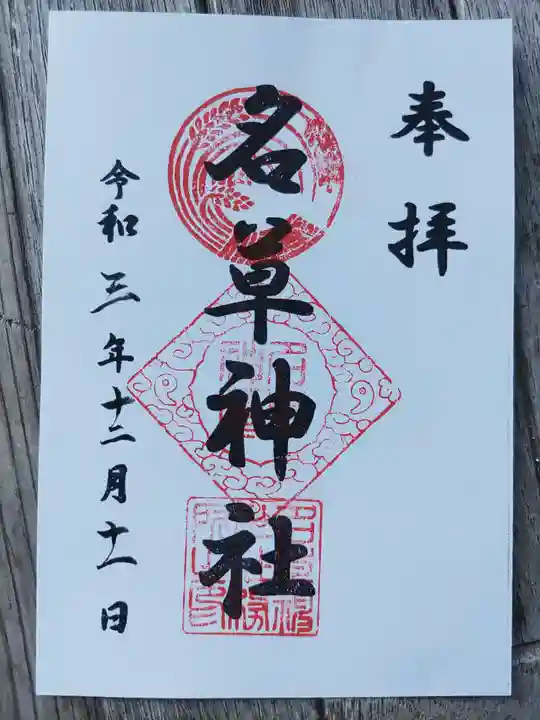 奉拝
名草神社
令和三年十二月十一日